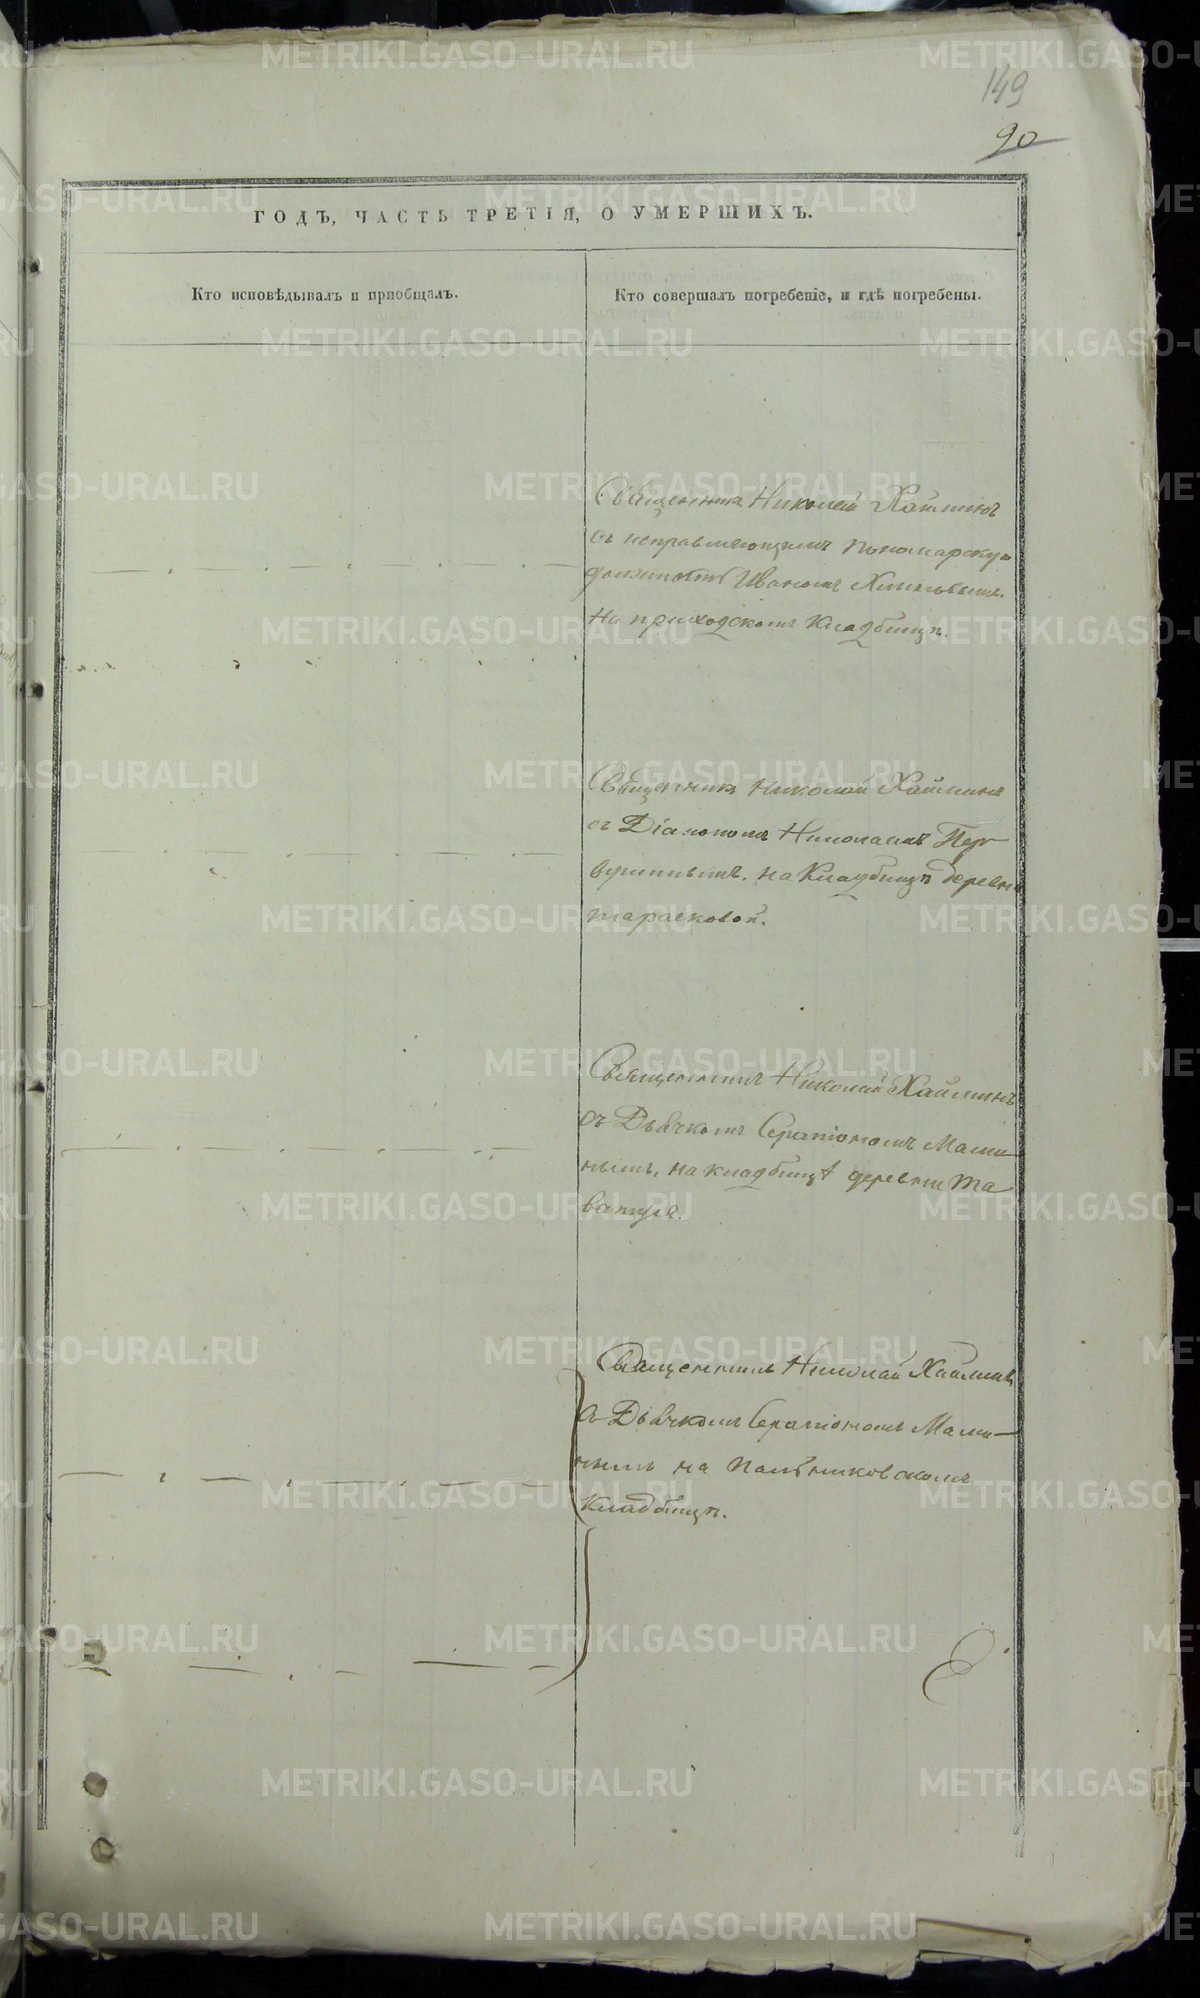 149
90
ГОДЪ, ЧАСТЬ ТРЕТІЯ, О УМЕРШИХЪ.
Кто исповѣдывалъ и приобщалъ.
Кто совершалъ погребеніе, и гдѣ погребены.
Священникъ Николай Хаймикъ
съ исправляющимъ пономарскую
должность Иваномъ
на приходскомъ кладбищѣ.
Священникъ Николай
съ Діакономъ Николаемъ Пер
вушинымъ. на Кладбищѣ деревни
тарасковой.
Священникъ Николай
съ Дьячкомъ Серапіономъ Мами
нымъ, на кладбищѣ деревни Та
ватуя.
Священникъ Николай
съ Дьячкомъ Серапіономъ Мами-
нымъ на Пальниковскомъ
Кладбищѣ.
METRIKI.GASO-URAL.RU